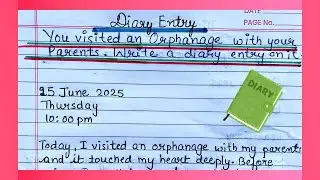 DATE
PAGE No.
Diary Entry
You visited an Orphanage with your
Parents. Write a diary entry on it.
25 June 2025
Thursday
10:00 pm
DIARY
Today, I visited an orphanage with my parents
and it touched my heart deeply. Before